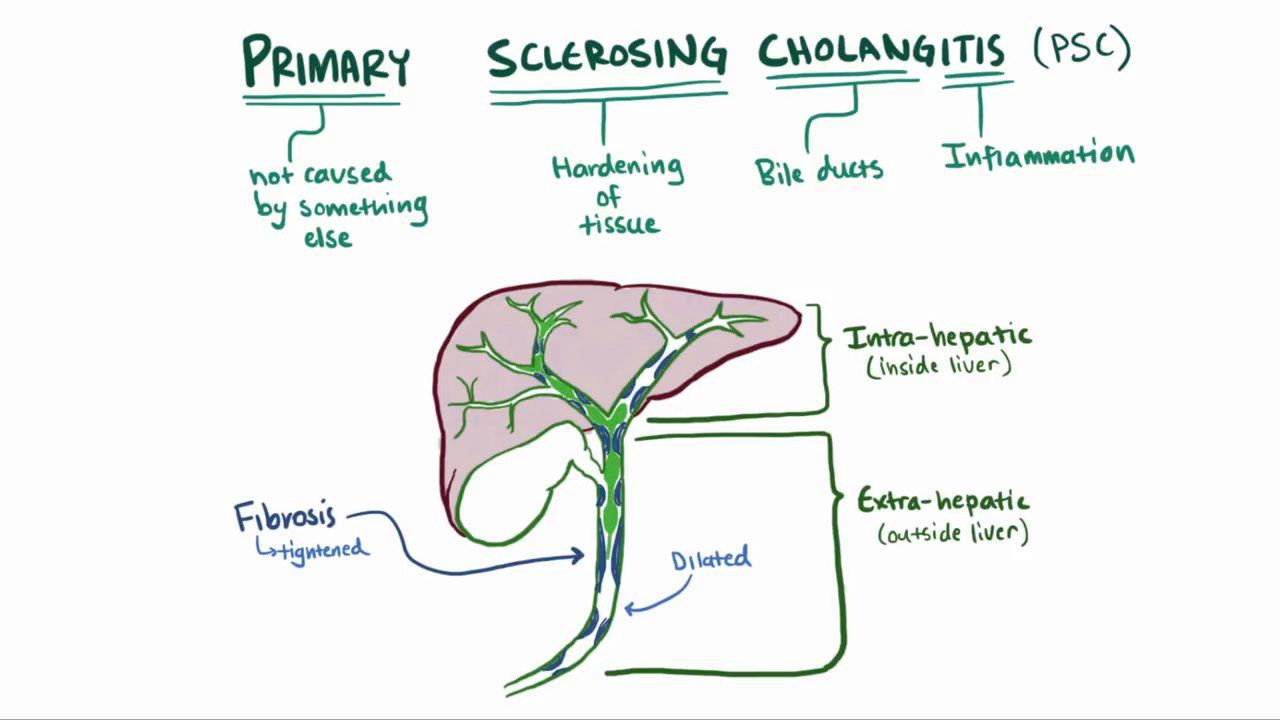 PRIMARY SCLEROSING CHOLANGITIS (PSC)
not caused
by something
else
Hardening
of
tissue
Bile ducts
Inflammation
Intra-hepatic
(inside liver)
Extra-hepatic
(outside liver)
Fibrosis
↳tightened
Dilated